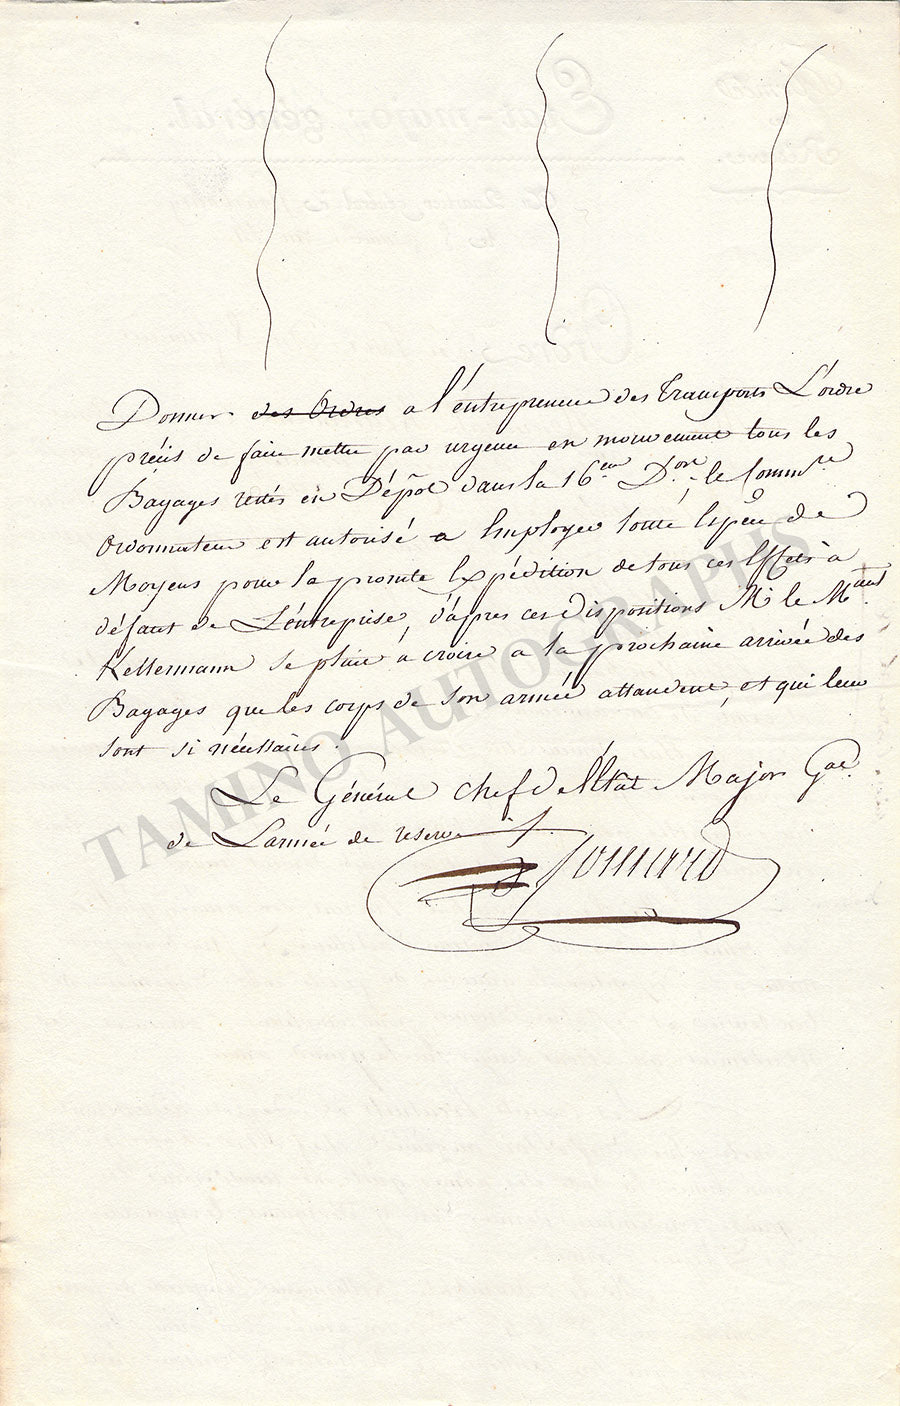 Donner des Ordres a l'entrepreneur des Transports L'ordre
précis de faire mettre par urgence en mouvement tous les
Bagages restés en Dépôt dans la 16.eme D.on, le Comm.re
Ordonnateur est autorisé a Employer toute Espèce de
Moyens pour la promte Expédition de tous ces Effets à
défaut de L'entreprise, d'après ces dispositions M.r le M.aual
Kellermann se plait à croire a la prochaine arrivée des
Bagages que les corps de son armée attendent, et qui leur
sont si nécessaires.
Le Général chef d'Etat Major Gal.
de L'armée de reserve
TAMINO AUTOGRAPHS